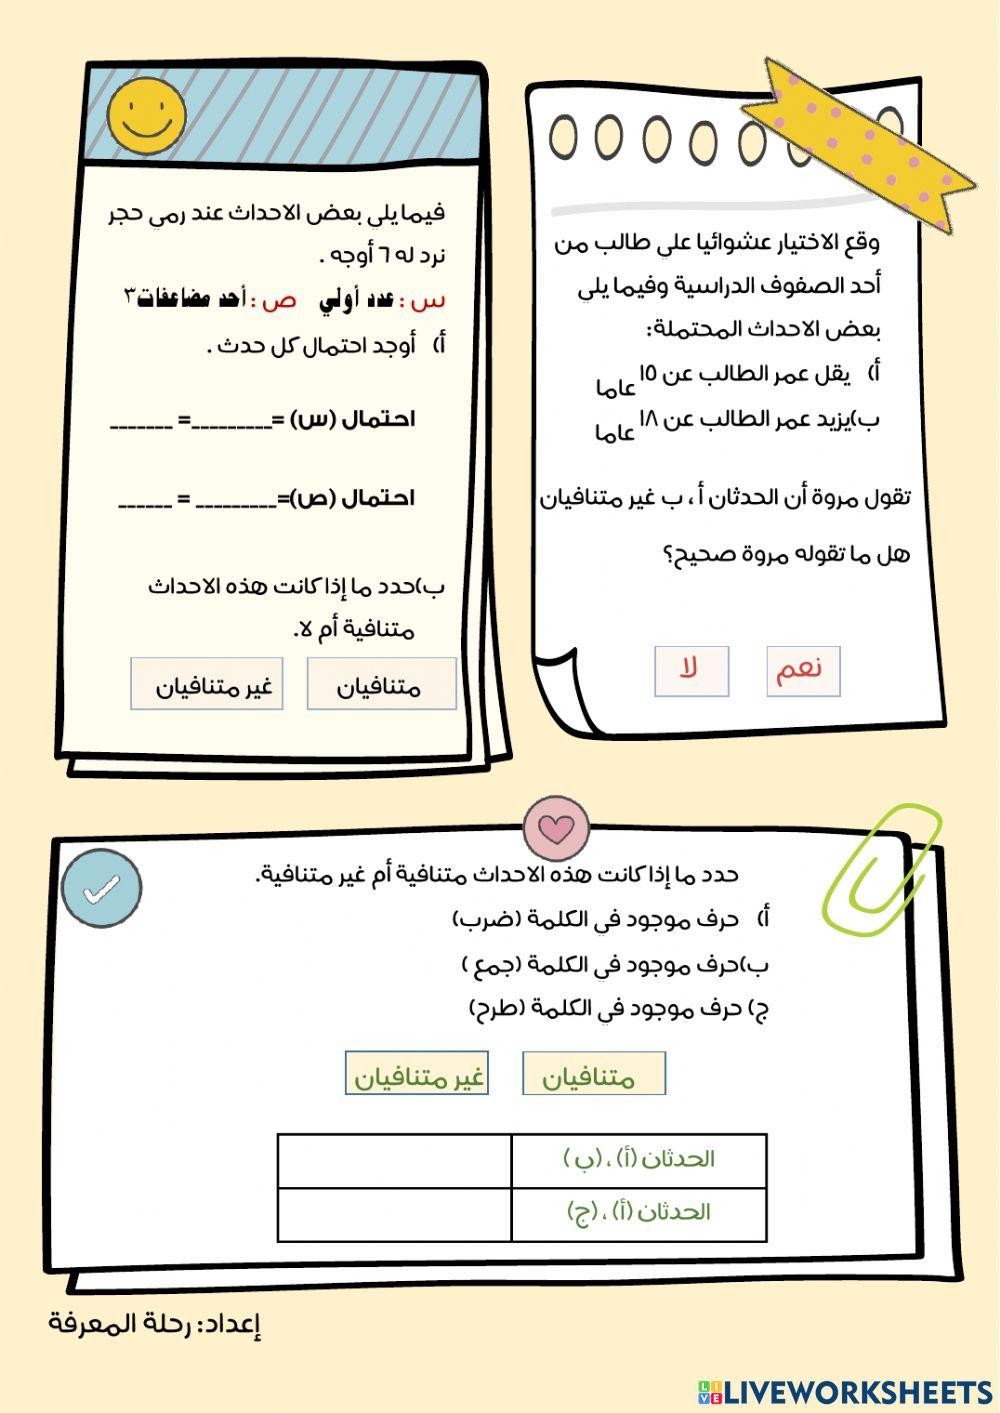 وقع الاختيار عشوائيا علي طالب من
أحد الصفوف الدراسية وفيما يلي
بعض الاحداث المحتملة:
أ) يقل عمر الطالب عن ١٥ عاما
ب)يزيد عمر الطالب عن ١٨ عاما
تقول مروة أن الحدثان أ ، ب غير متنافيان
هل ما تقوله مروة صحيح؟
نعم لا
فيما يلي بعض الاحداث عند رمي حجر
نرد له ٦ أوجه .
س : عدد أولي ص : أحد مضاعفات ٣
أ) أوجد احتمال كل حدث .
احتمال (س) =_________= _______
احتمال (ص)=_________ = ______
ب)حدد ما إذا كانت هذه الاحداث
متنافية أم لا.
متنافيان غير متنافيان
حدد ما إذا كانت هذه الاحداث متنافية أم غير متنافية.
أ) حرف موجود في الكلمة (ضرب)
ب)حرف موجود في الكلمة (جمع )
ج) حرف موجود في الكلمة (طرح)
متنافيان غير متنافيان
الحدثان (أ) ، (ب )
الحدثان (أ) ، (ج)
إعداد: رحلة المعرفة
LIVE LIVEWORKSHEETS